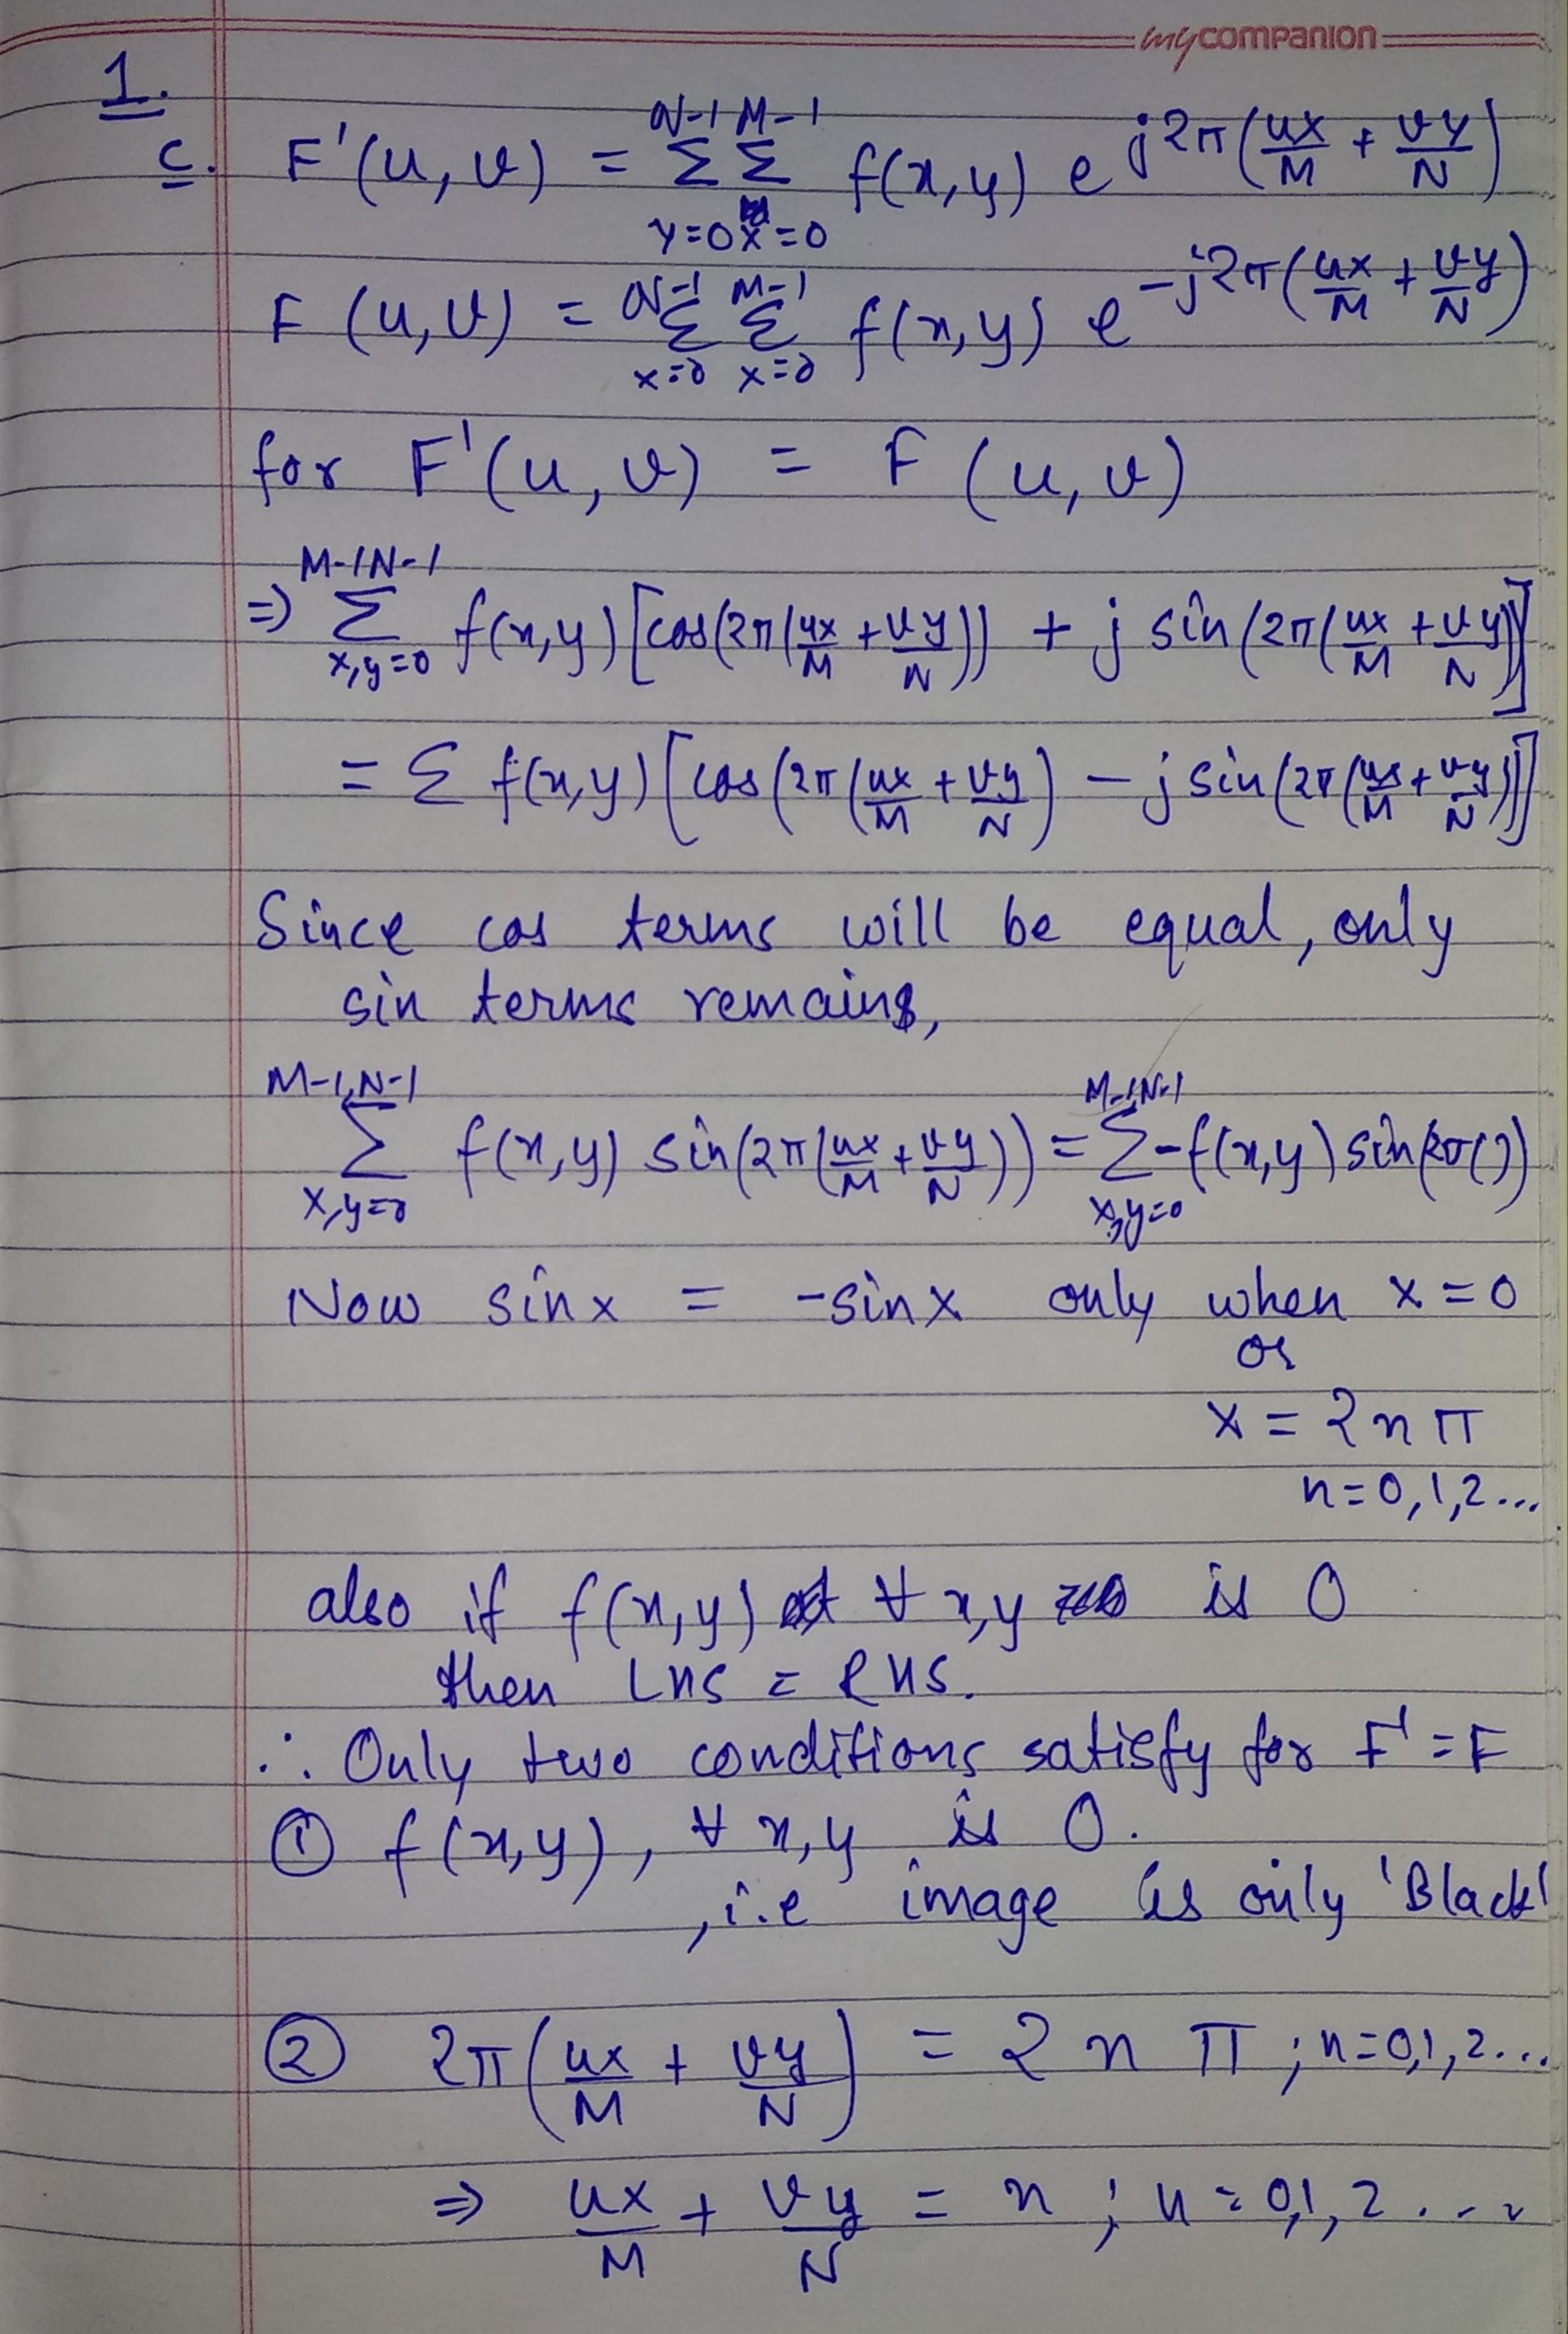 mycompanion
1.
c. F'(u, v) = Σ_{y=0}^{N-1} Σ_{x=0}^{M-1} f(x,y) e^{j2π(ux/M + vy/N)}
F (u,v) = Σ_{x=0}^{N-1} Σ_{x=0}^{M-1} f(x,y) e^{-j2π(ux/M + vy/N)}
for F'(u, v) = F (u, v)
⇒ Σ_{x,y=0}^{M-1 N-1} f(x,y) [cos(2π(ux/M + vy/N)) + j sin(2π(ux/M + vy/N))]
= Σ f(x,y) [cos(2π(ux/M + vy/N) - j sin(2π(ux/M + vy/N))]
Since cos terms will be equal, only
sin terms remains,
Σ_{x,y=0}^{M-1,N-1} f(x,y) sin(2π(ux/M + vy/N)) = Σ_{x,y=0}^{M-1,N-1} -f(x,y) sin(2π())
Now sinx = -sinx only when x = 0
or
x = 2nπ
n=0,1,2...
also if f(x,y) ∀ x,y is 0
then LHS = RHS.
∴ Only two conditions satisfy for F' = F
① f(x,y), ∀ x,y is 0.
, i.e image is only 'Black'
② 2π(ux/M + vy/N) = 2nπ ; n=0,1,2...
⇒ ux/M + vy/N = n ; n = 0,1,2 ...